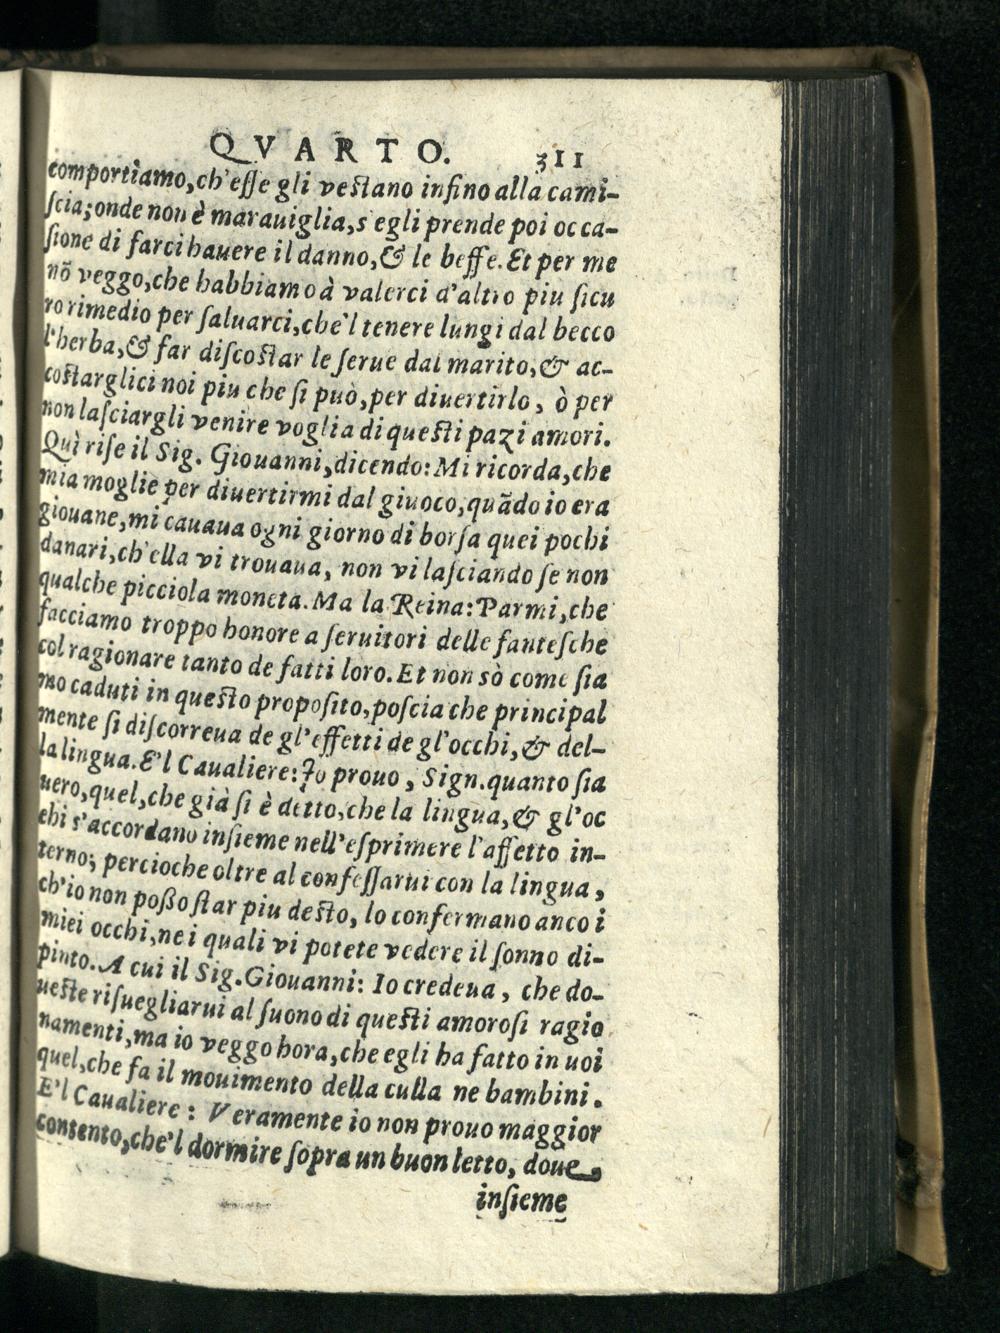 QVARTO. 311
comportiamo,ch'esse gli vestano infino alla cami-
scia; onde non è marauiglia,s'egli prende poi occa-
sione di farci hauere il danno,& le beffe. Et per me
nõ veggo,che habbiamo à valerci d'altro piu sicu
ro rimedio per saluarci,che'l tenere lungi dal becco
l'herba,& far discostar le serue dal marito,& ac-
costarglici noi piu che si può,per diuertirlo, ò per
non lasciargli venire voglia di questi pazi amori.
Quì rise il Sig. Giouanni,dicendo: Mi ricorda,che
mia moglie per diuertirmi dal giuoco,quãdo io era
giouane,mi cauaua ogni giorno di borsa quei pochi
danari,ch'ella vi trouaua, non vi lasciando se non
qualche picciola moneta. Ma la Reina: Parmi,che
facciamo troppo honore a seruitori delle fantesche
col ragionare tanto de fatti loro. Et non sò come sia
mo caduti in questo proposito,poscia che principal
mente si discorreua de gl'effetti de gl'occhi,& del-
la lingua. E'l Caualiere: Io prouo, Sign. quanto sia
uero,quel,che già si è detto,che la lingua,& gl'oc
chi s'accordano insieme nell'esprimere l'affetto in-
terno; percioche oltre al confessarui con la lingua,
ch'io non posso star piu desto, lo confermano anco i
miei occhi,ne i quali vi potete vedere il sonno di-
pinto. A cui il Sig. Giouanni: Io credeua, che do-
ueste risuegliarui al suono di questi amorosi ragio
namenti,ma io veggo hora,che egli ha fatto in uoi
quel,che fa il mouimento della culla ne bambini.
E'l Caualiere: Veramente io non prouo maggior
contento,che'l dormire sopra un buon letto, doue
insieme